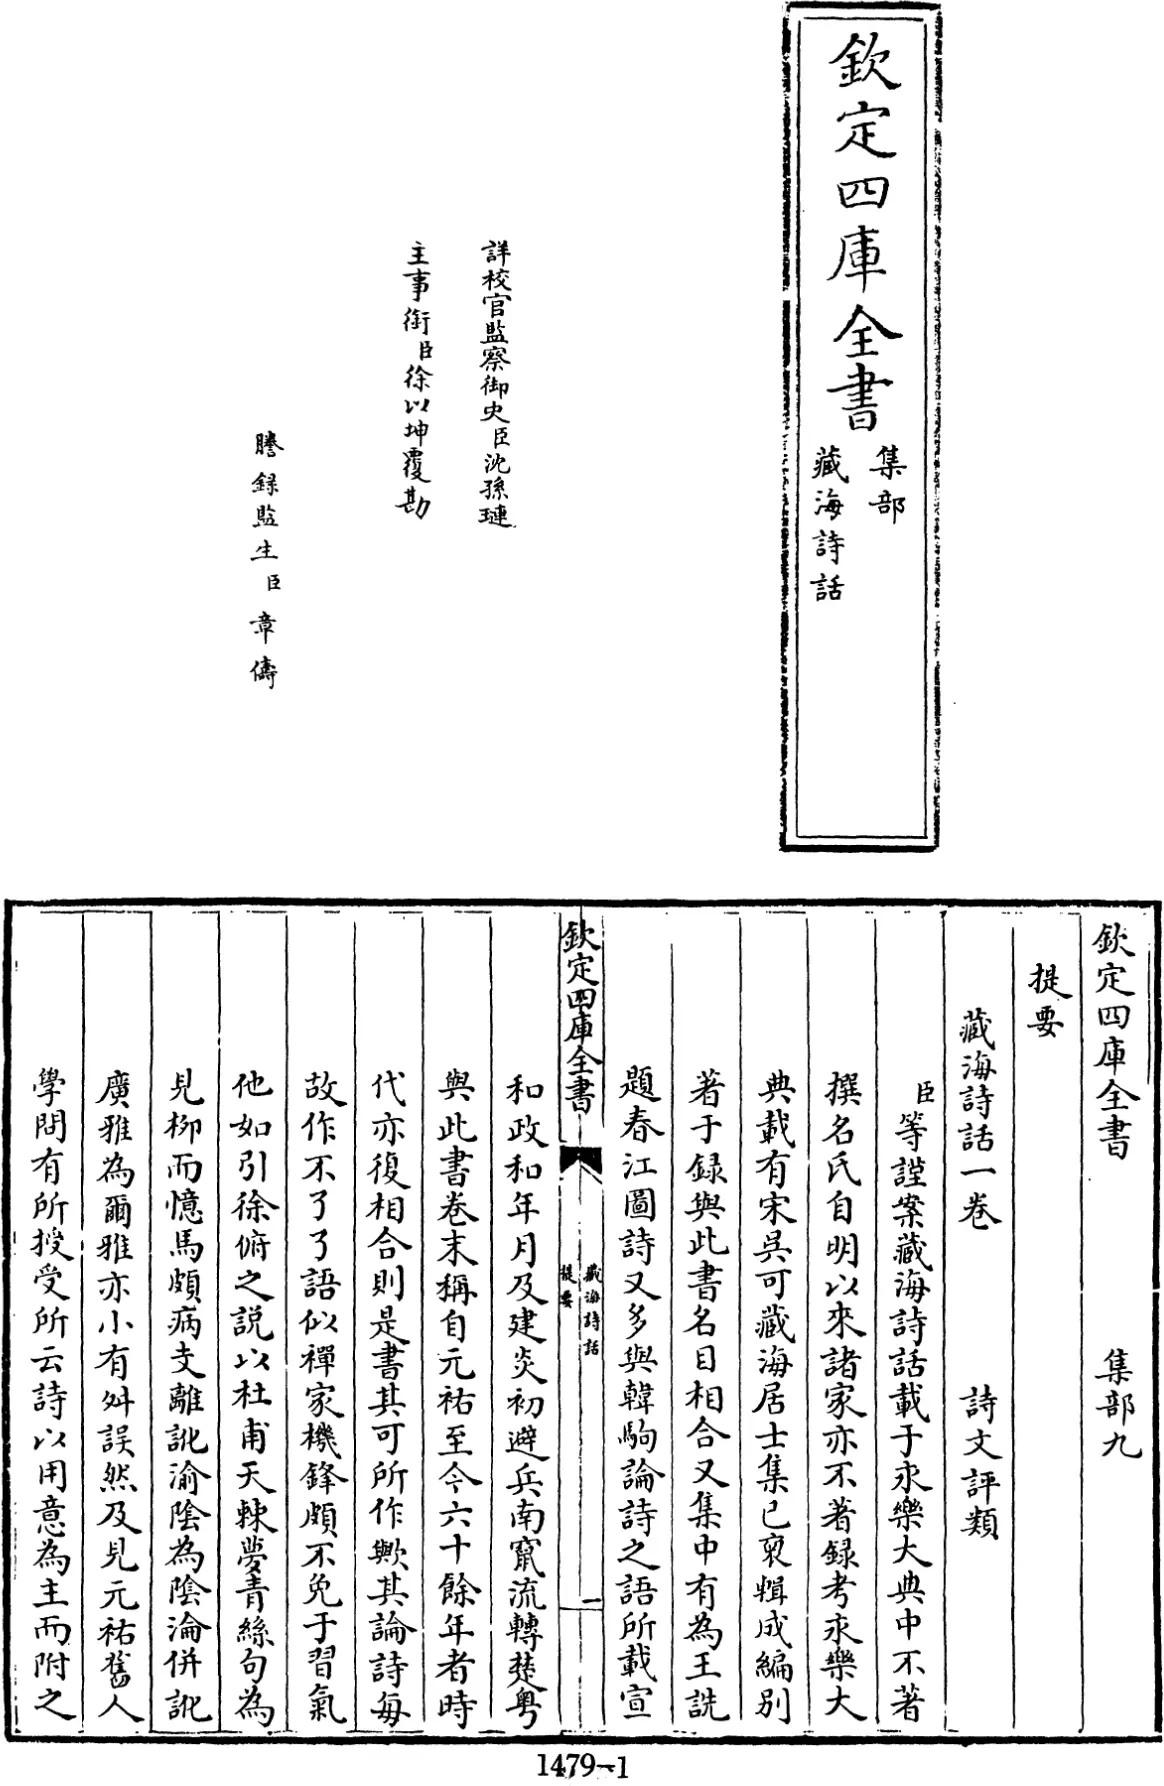 欽定四庫全書
集部
藏海詩話
詳校官監察御史臣沈孫璉
主事銜臣徐以坤覆勘
謄錄監生臣章儔
欽定四庫全書　集部九
提要
藏海詩話一卷　詩文評類
臣等謹案藏海詩話載于永樂大典中不著
撰名氏自明以來諸家亦不著錄考永樂大
典載有宋吳可藏海居士集已裒輯成編別
著于錄與此書名目相合又集中有為王詵
題春江圖詩又多與韓駒論詩之語所載宣
欽定四庫全書
藏海詩話
提要
一
和政和年月及建炎初避兵南竄流轉楚粤
與此書卷末稱自元祐至今六十餘年者時
代亦復相合則是書其可所作歟其論詩每
故作不了了語似禪家機鋒頗不免于習氣
他如引徐俯之説以杜甫天棘夢青絲句為
見柳而憶馬頗病支離訛渝陰為陰淪併訛
廣雅為爾雅亦小有舛誤然及見元祐舊人
學問有所授受所云詩以用意為主而附之
1479-1